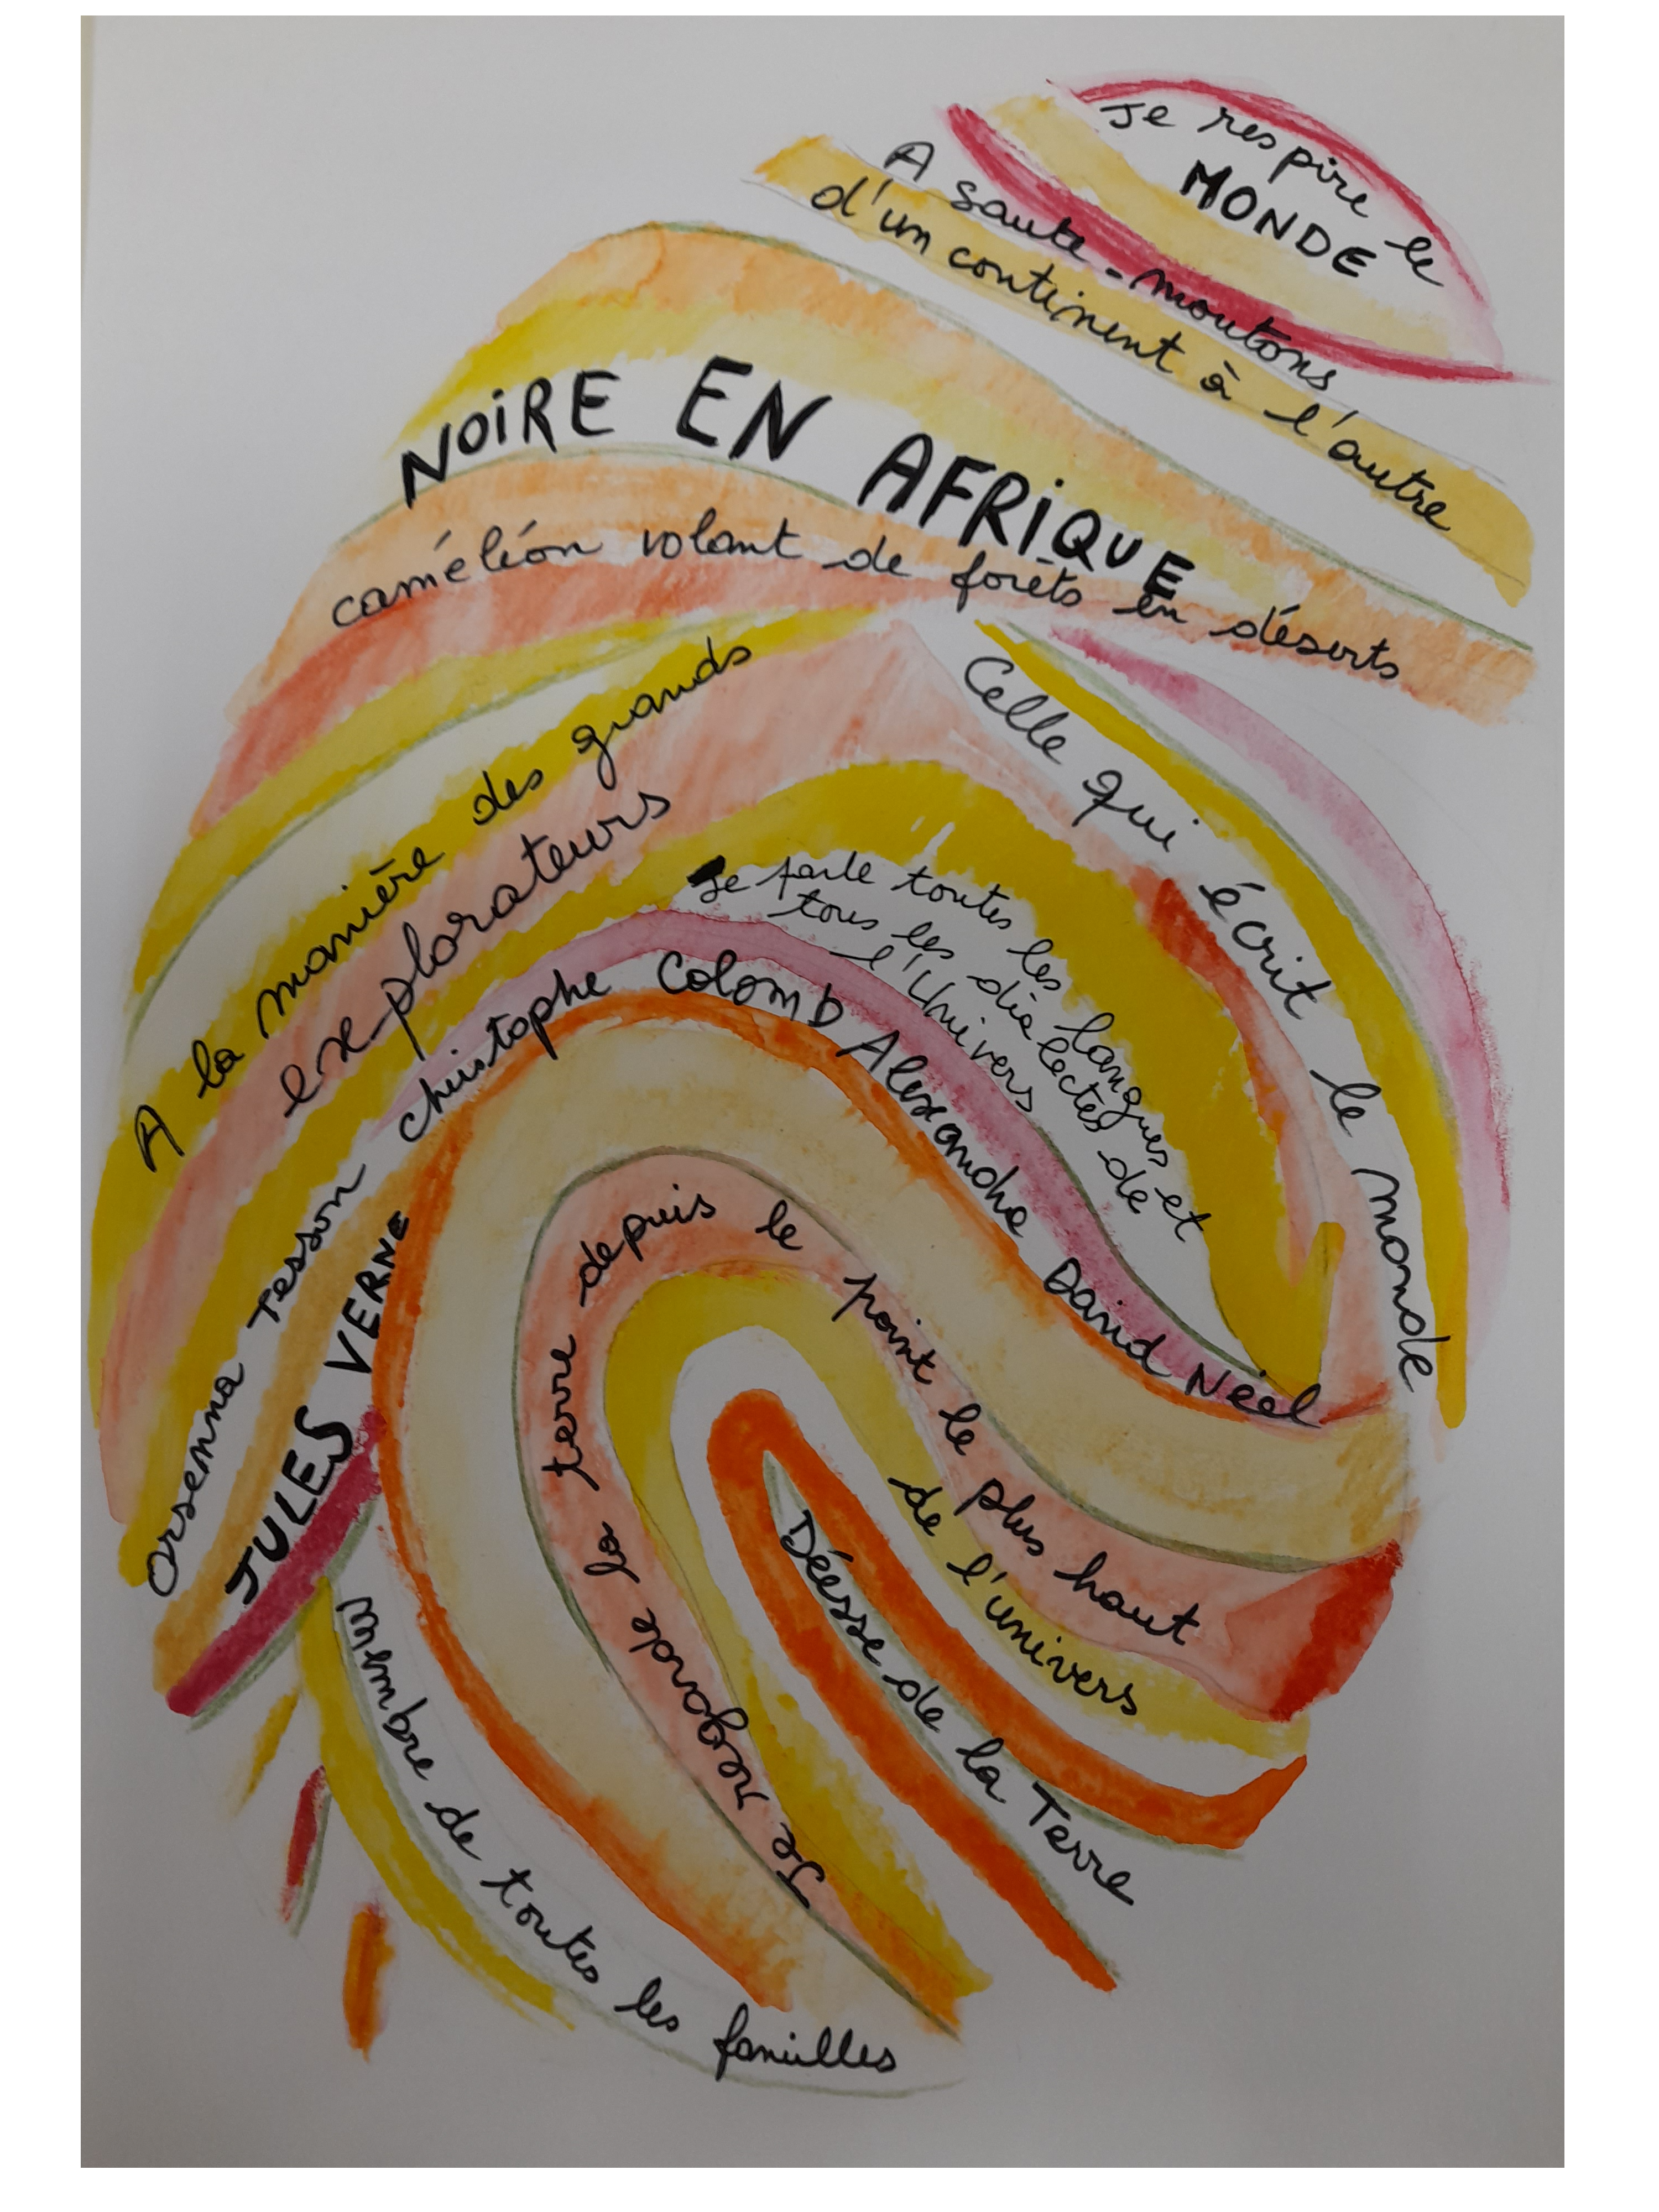 Je respire le
MONDE
A saute-moutons
d'un continent à l'autre
NOIRE EN AFRIQUE
caméléon volant de forêts en déserts
A la manière des grands
explorateurs
Celle qui écrit le monde
Je parle toutes les langues et
tous les dialectes de
l'Univers
Orsenna Tesson christophe Colomb Alexandra David Néel
JULES VERNE
Je regarde la terre depuis le point le plus haut
de l'univers
Déésse de la Terre
Membre de toutes les familles